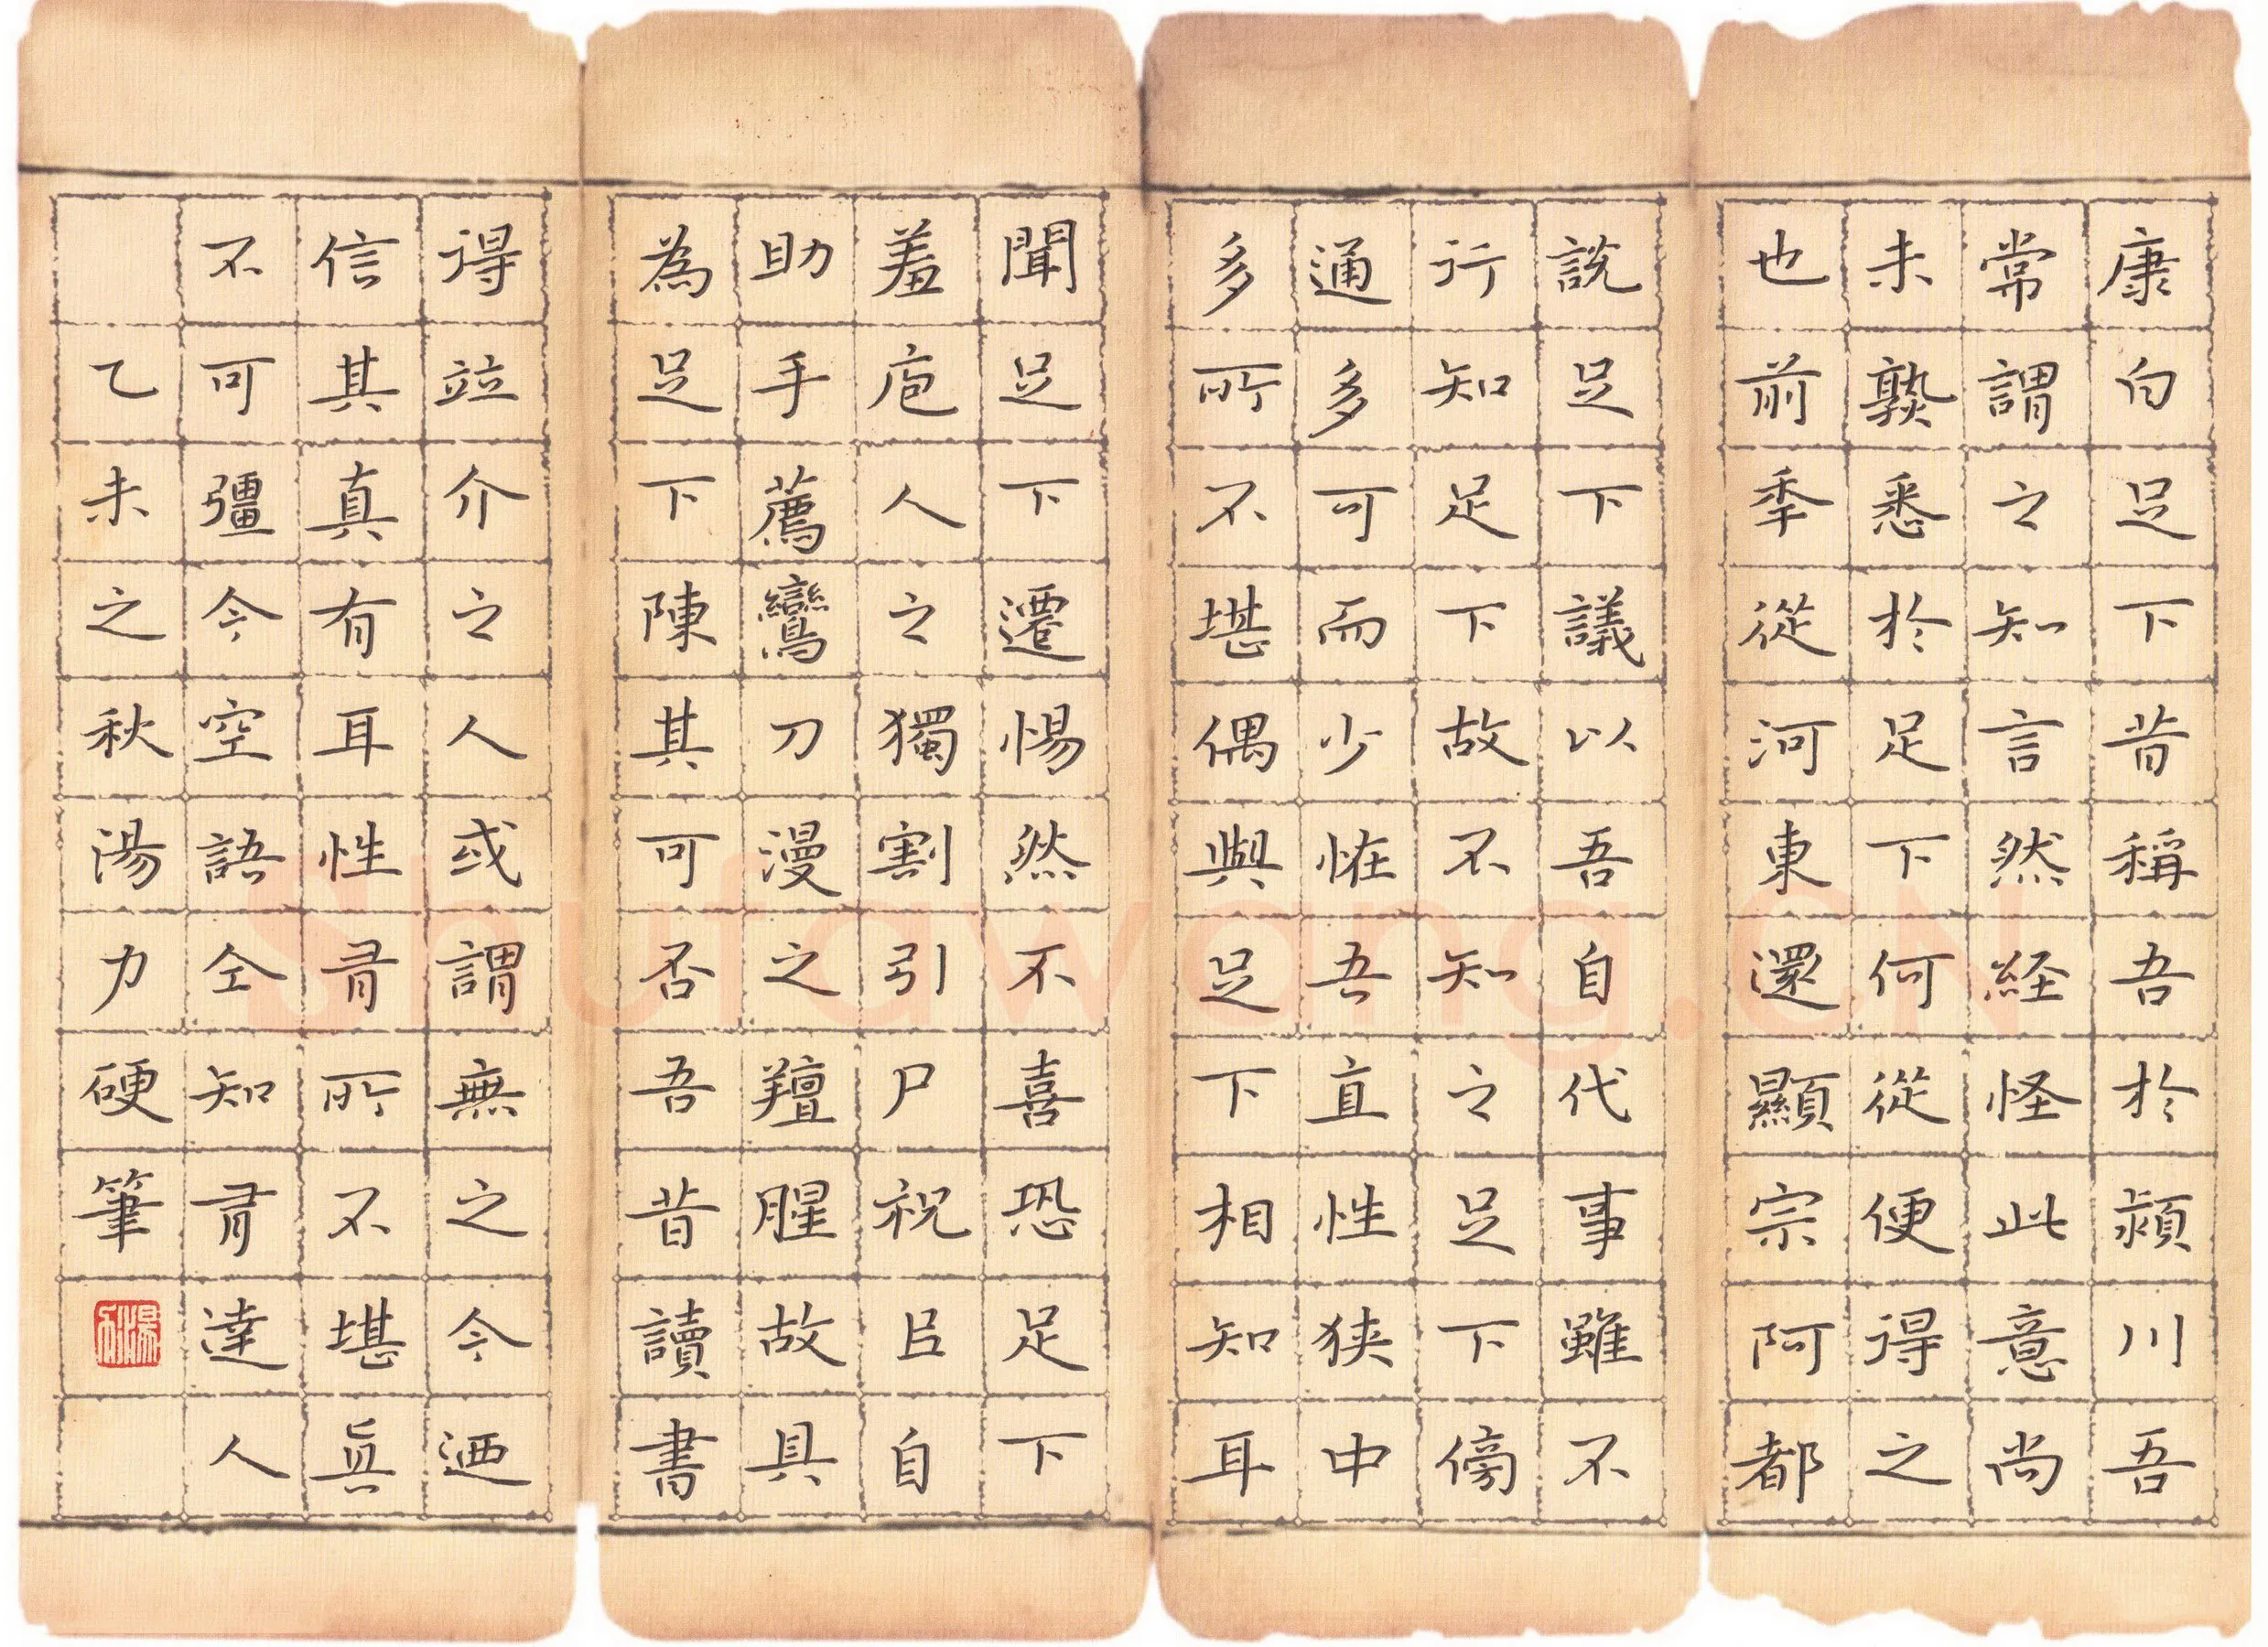 康白足下昔稱吾於潁川吾
常謂之知言然経怪此意尚
未熟悉於足下何從便得之
也前秊從河東還顯宗阿都
說足下議以吾自代事雖不
行知足下故不知之足下傍
通多可而少恠吾直性狭中
多所不堪偶與足下相知耳
聞足下遷惕然不喜恐足下
羞庖人之獨割引尸祝㠯自
助手薦鸞刀漫之羶腥故具
為足下陳其可否吾昔讀書
得竝介之人或謂無之今迺
信其真有耳性有所不堪眞
不可彊今空語仝知有達人
乙未之秋湯力硬筆
Shufawang.CN